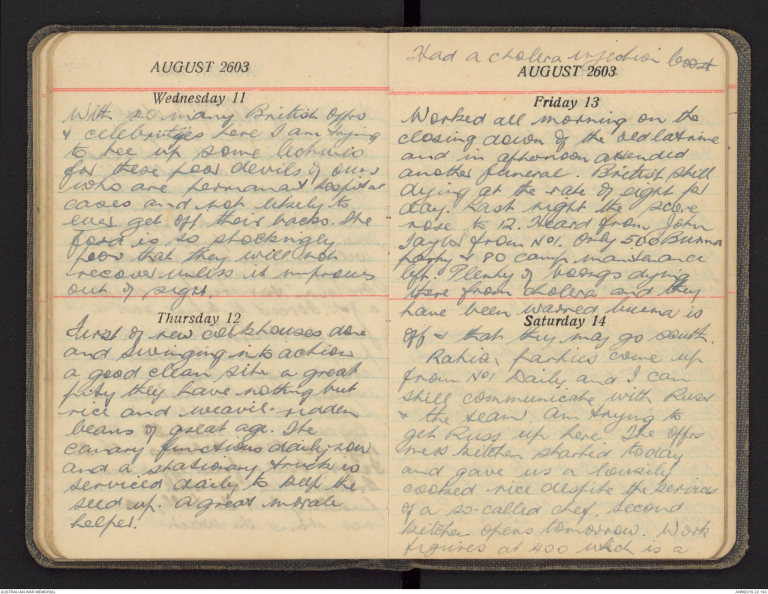 AUGUST 2603
Wednesday 11
With so many British Offrs
& celebrities here I am trying
to tee up some lectures
for these poor devils of ours
who are permanent hospital
cases and not likely to
ever get off their backs. The
food is so shockingly
poor that they will not
recover unless it improves
out of sight.
Thursday 12
First of new cookhouses done
and swinging into action
a good clean site a great
pity they have nothing but
rice and weavil-ridden
beans of great age. The
canary functions daily now
and a stationary truck is
serviced daily to keep the
seed up. A great morale
helper.
Had a cholera injection boost
AUGUST 2603
Friday 13
Worked all morning on the
closing down of the old latrine
and in afternoon attended
another funeral. British still
dying at the rate of eight per
day. Last night the score
rose to 12. Heard from John
Taylor from No1. Only 500 Burma
party & 80 camp maintenance
left. Plenty of boongs dying
there from cholera and they
have been warned burma is
Saturday 14
off & that they may go south.
Ration parties come up
from No1 Daily and I can
still communicate with Russ
& the team. Am trying to
get Russ up here. The Offrs
mess kitchen started today
and gave us a lousily
cooked rice despite the services
of a so-called chef. Second
kitchen opens tomorrow. Work
figures at 400 which is a
AUSTRALIAN WAR MEMORIAL